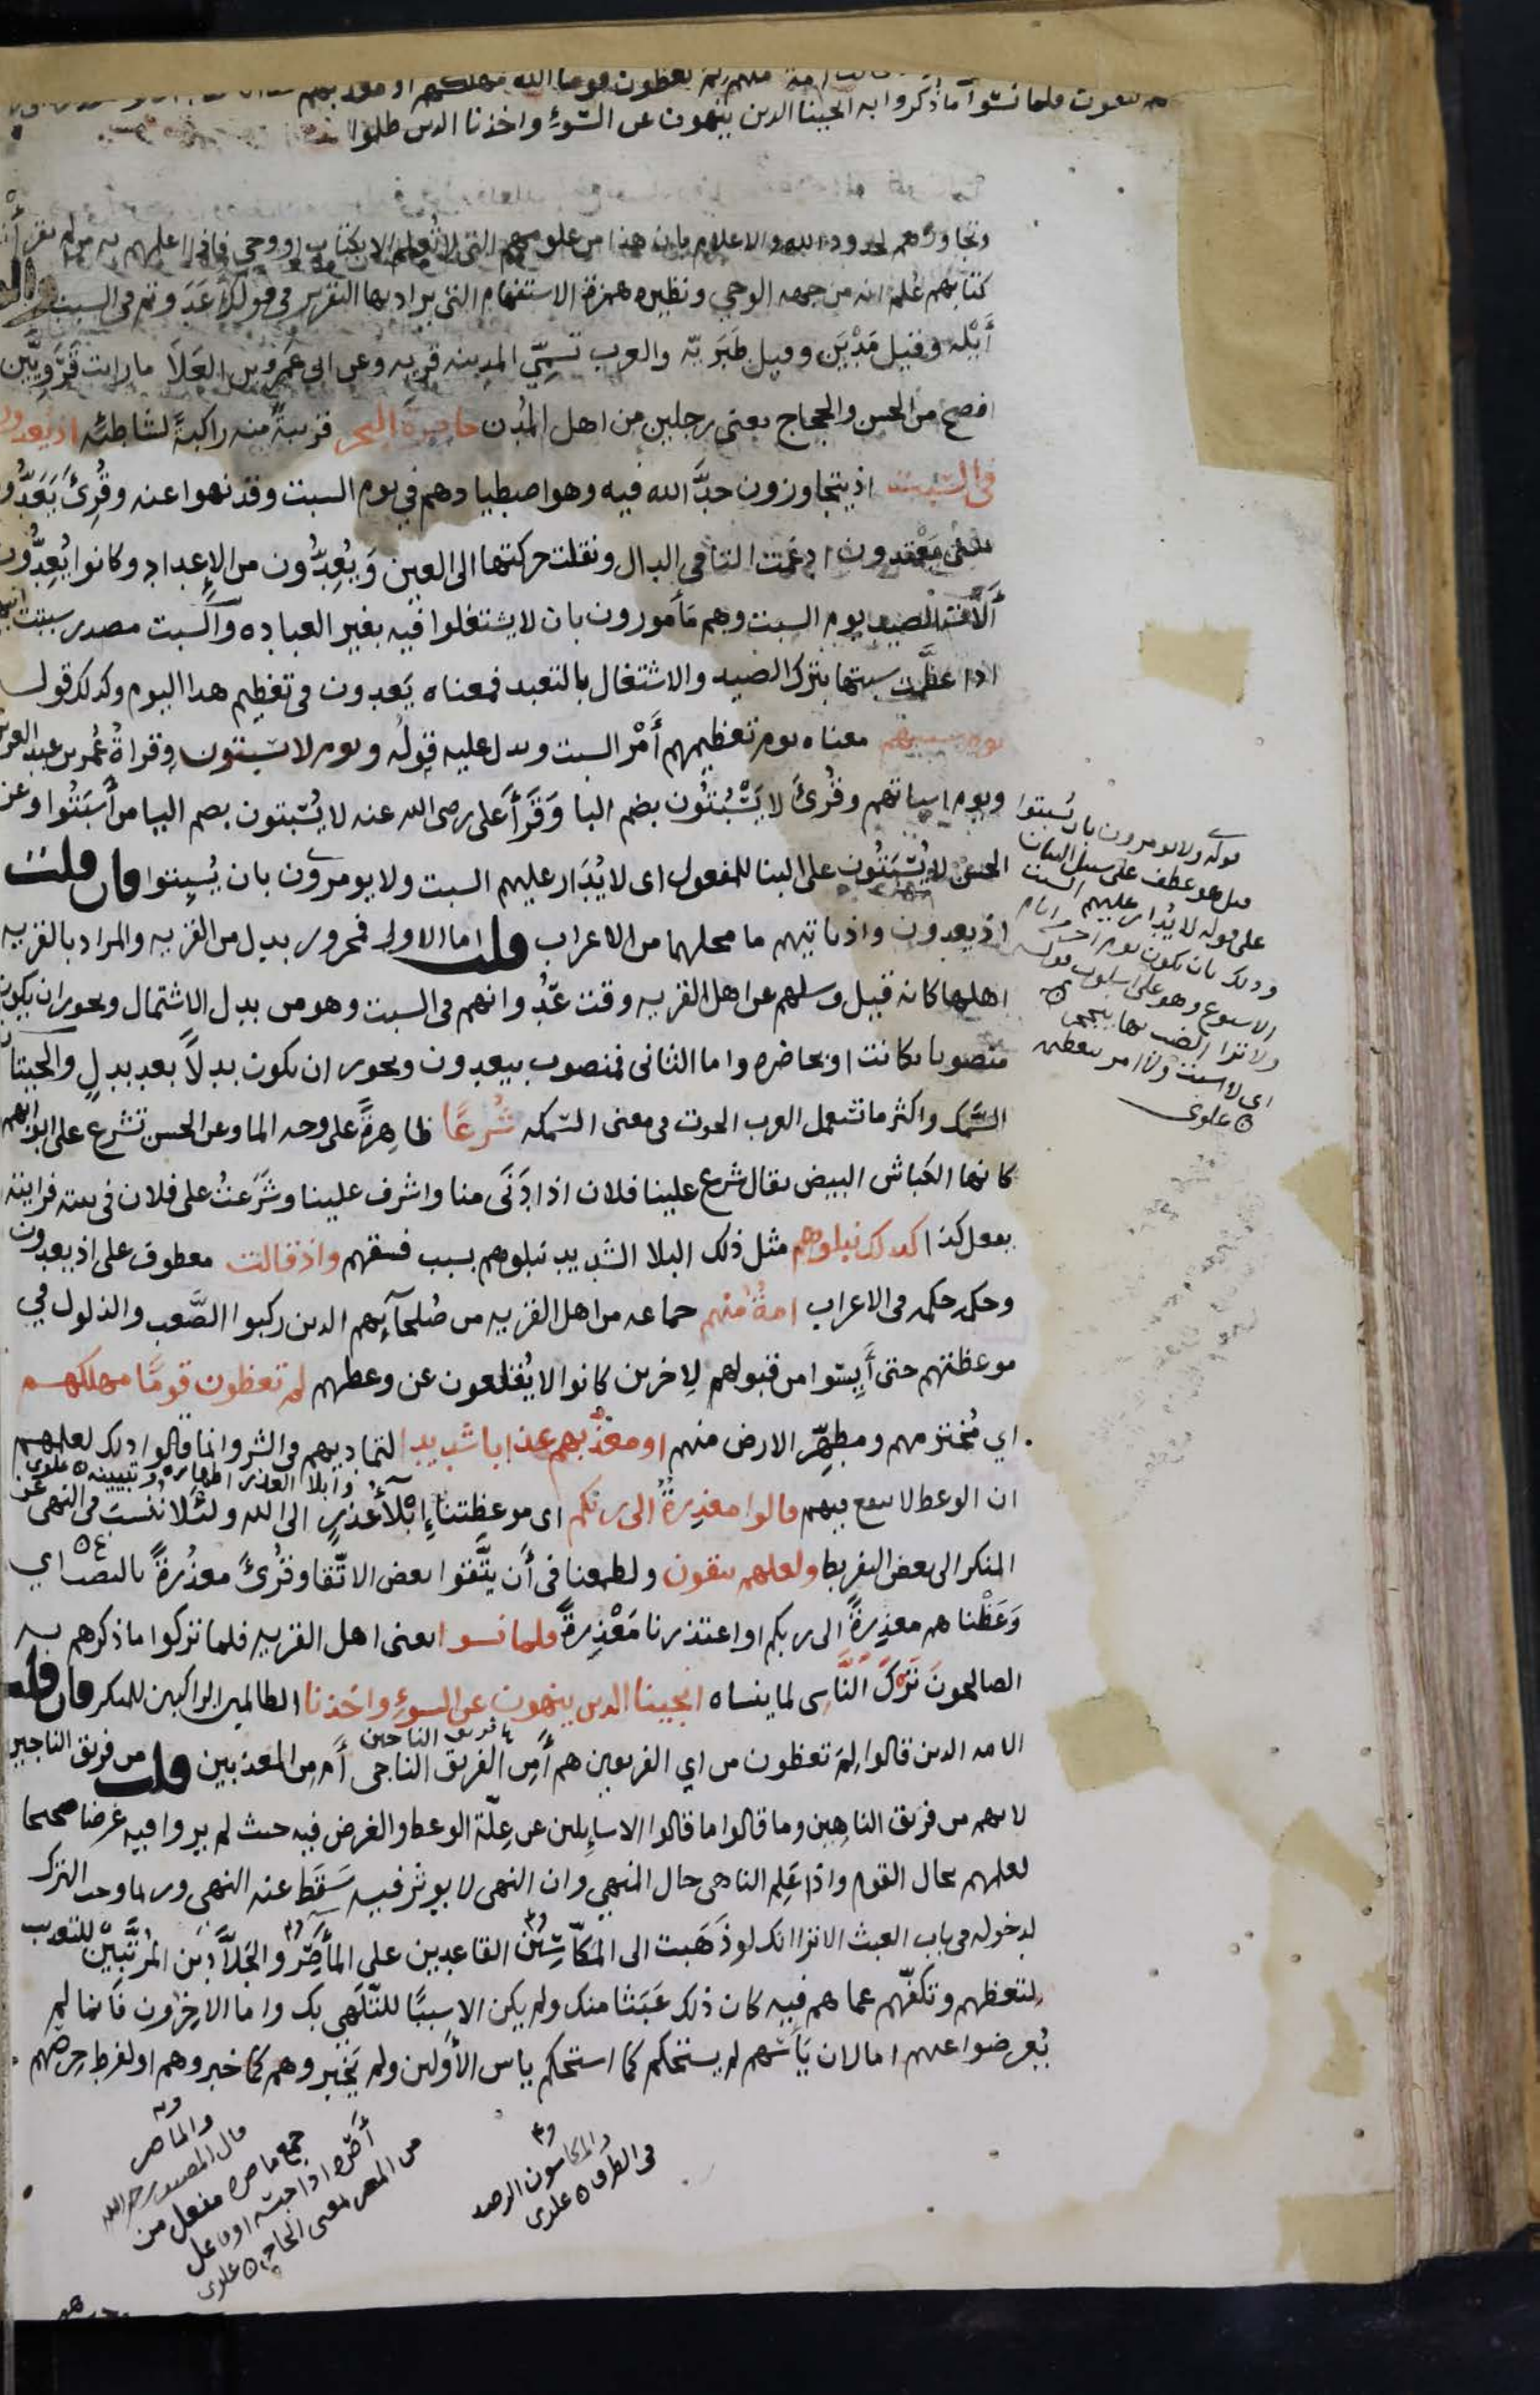 يتقون فلما نسوا ما ذكروا به انجينا الدين ينهون عن السّوءِ واخذنا الدين ظلموا
وتجاوزهم لحدود الله والاعلام بان هذا من علومهم التي لا تُعلم الا بكتاب او وحي فاذا اعلمهم به من لم يقرأ
كتابهم عُلم انه من جهه الوحي ونظيره همزة الاستفهام التي يراد بها التقرير في قولك أعَدَوتم في السبت
أيْله وقيل مَدْيَن وقيل طَبَريّه والعرب تسمّي المدينه قريه وعن ابي عَمرو بن العَلآ ما رايت قَرَويَّين
افصح من الحسن والحجاج يعني رجلين من اهل المُدن حاضرة البحر قريبةً منه راكبةً لشاطئه اذ يعدون
في السبت اذ يتجاوزون حدَّ الله فيه وهو اصطيادهم في يوم السبت وقد نهوا عنه وقُرئَ يَعَدُّون
بمعنى يَعْتدون ادغمت التا في الدال ونقلت حركتها الى العين وَيُعِدُّون من الإعداد وكانوا يُعِدُّون
آلات الصيد يوم السبت وهم مَأمورون بان لا يشتغلوا فيه بغير العباده والسبت مصدر سبتت اليهود
اذا عظَّمت سبتها بترك الصيد والاشتغال بالتعبد فمعناه يَعدون في تعظيم هدا اليوم وكدلك قوله
يوم سبتهم معناه يوم تعظيمهم أَمْر السبت ويدل عليه قولُه ويوم لا يسبتون وقراةُ عُمر بن عبد العزيز
ويوم اسباتهم وقُرئَ لا يَسْبُتُون بضم البا وَقَرَأَ على رضى الله عنه لا يُسْبتون بضم اليا من أَسْبَتُوا وعن
الحسن لا يُسْبَتُون على البنا للمفعول اى لا يُدَار عليهم السبت ولا يومرون بان يُسبِتوا فان قلت
اذ يعدون واذ تاتيهم ما محلهما من الاعراب قلت اما الاول فمجرور بدل من القريه والمراد بالقريه
اهلها كانه قيل وسلهم عن اهل القريه وقت عَدْوانهم في السبت وهو من بدل الاشتمال ويجوز ان يكون
منصوبا بكانت او بحاضره واما الثاني فمنصوب بيعدون ويجوز ان يكون بدلاً بعد بدلٍ والحيتان
السَّمك واكثر ما تستعمل العرب الحوت في معنى السّمكه شُرعًا ظاهِرةً على وجه الما وعن الحسن تشرع على ابوابهم
كانها الكباش البيض يقال شرع علينا فلان اذا دَنَى منا واشرف علينا وشَرَعتُ على فلان في بيته فرايته
يفعل كذا كدلك نبلوهم مثل ذلك البلا الشديد نبلوهم بسبب فسقهم واذ قالت معطوف على اذ يعدون
وحكمه حكمه في الاعراب امةٌ منهم جماعه من اهل القريه من صُلحآئهم الدين ركبوا الصَّعب والذلول في
موعظتهم حتى أَيِسُوا من قبولهم لاِخرين كانوا لا يُقلعون عن وعظهم لم تعظون قومًا مهلكهم
اي مُخترمهم ومطهّر الارض منهم او معذّبهم عذابا شديدا لتماديهم في الشر وانما قالوا دلك لعلمهم
وابلا العذر اظهاره وتبيينه علوى
ان الوعظ لا ينفع فيهم قالوا معذِرةً الى ربكم اى موعظتنا إبْلآءُ عُذرٍ الى الله ولئلا نُنسَبَ في النهى عن
المنكر الى بعض التفريط ولعلهم يتقون ولطمعنا في أن يتَّقوا بعض الاتّقا وقُرئَ معذرةً بالنصب اي
وَعَظْناهم معذِرةً الى ربكم او اعتذرنا مَعْذِرةً فلما نسوا يعنى اهل القريه فلما تركوا ما ذكرهم به
الصالحونَ تَرْكَ النَّاسى لما ينساه انجينا الدين ينهون عن السوءِ واخذنا الظالمين الراكبين للمنكر فان قلت
فريق الناجين
الامه الدين قالوا لِمَ تعظون من اي الفريقين هم أَمِن الفريق الناجى أم من المعذبين قلت من فريق الناجين
لانهم من فريق الناهِين وما قالوا ما قالوا الا سايِلين عن عِلّة الوعظ والغرض فيه حيث لم يروا فيه غرضا صحيحا
لعلمهم بحال القوم واذا عَلِم الناهى حال المنهي وان النهى لا يوثر فيه سَقَط عنه النهى وربما وجب الترك
لدخوله في باب العبث الا ترا انك لو ذَهَبت الى المكّاسِيْن القاعدين على المأَصِر والجَلَّادِين المُرتَّبيْن للتعذيب
لتعظهم وتكفّهم عما هم فيه كان ذلك عَبَثا منك ولم يكن الا سببًا للتّلَهي بك واما الاخرون فَانما لم
يُعرضوا عنهم اما لان يَأْسَهم لم يستحكم كما استحكم ياس الأَولين ولم يَخبروهم كما خبروهم او لفرط حِرصهم
قوله ولا يومرون بان يُسبتوا
قيل هو عطف على سبيل البيان
على قوله لا يدار عليهم السبت
ودلك بان يكون يوما من ايام
الاسبوع وهو على اسلوب قوله
ولا ترا الضب بها ينجحر
اى لا سبت ولا امر بتعظيمه
علوى
والمكاسون الرصد
في الطرق علوى
والماصر
قال المصنف رحمه الله
جمع ماصره مفعل من
أَصَره اذا حبسه او فاعل
من المصر بمعنى الحاجز علوى